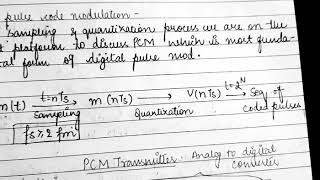 pulse code modulation -
sampling & quantization process we are on the
platform to discuss PCM which is most funda-
tal form of digital pulse mod.
m(t) t=nTs → m(nTs) → v(nTs) t=2^N → Seq. of
Sampling Quantization coded pulses
fs ≥ 2 fm
PCM Transmitter Analog to digital
converter